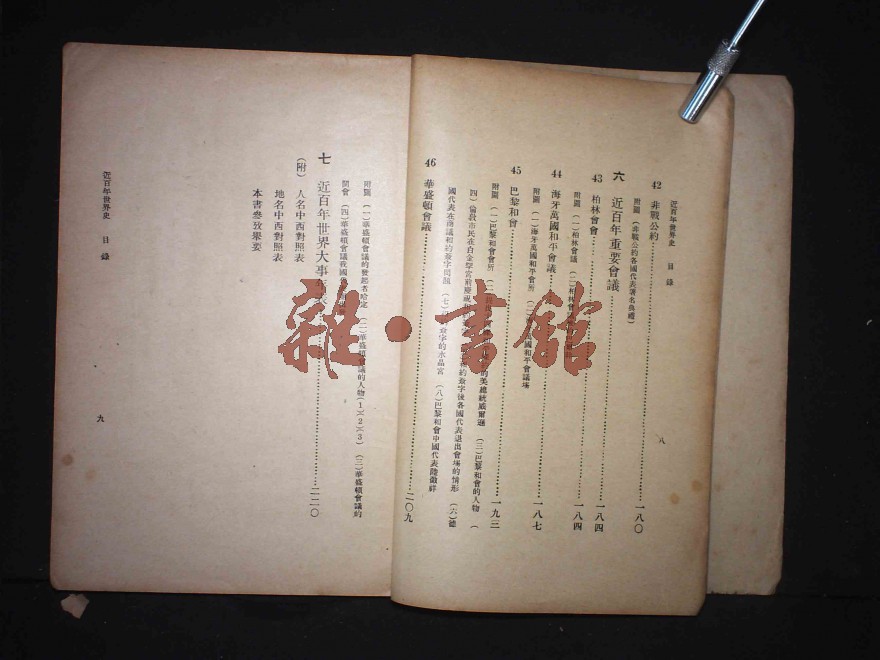 近百年世界史　目錄
42 非戰公約……一八〇
附圖（非戰公約各國代表署名典禮）
六　近百年重要會議……一八四
43 柏林會會……一八四
附圖（一）柏林會議（二）柏林會
44 海牙萬國和平會議……一八七
附圖（一）海牙萬國和平會所 萬國和平會議場
45 巴黎和會……一九三
附圖（一）巴黎和會會所 的美總統威爾遜（三）巴黎和會的人物（
四）倫敦市民在白金 宮前慶祝 和約簽字後各國代表退出會場的情形（六）德
國代表在商議和約簽字問題（七） 簽字的水晶宮（八）巴黎和會中國代表陸徵祥
46 華盛頓會議……二〇九
八
附圖（一）華盛頓會議的發起者哈定（二）華盛頓會議的人物（1×2×3）（三）華盛頓會議的
開會（四）華盛頓會議我國
七　近百年世界大事 ……二二〇
（附）人名中西對照表
地名中西對照表
本書參攷畢要
近百年世界史　目錄
九
雜·書館